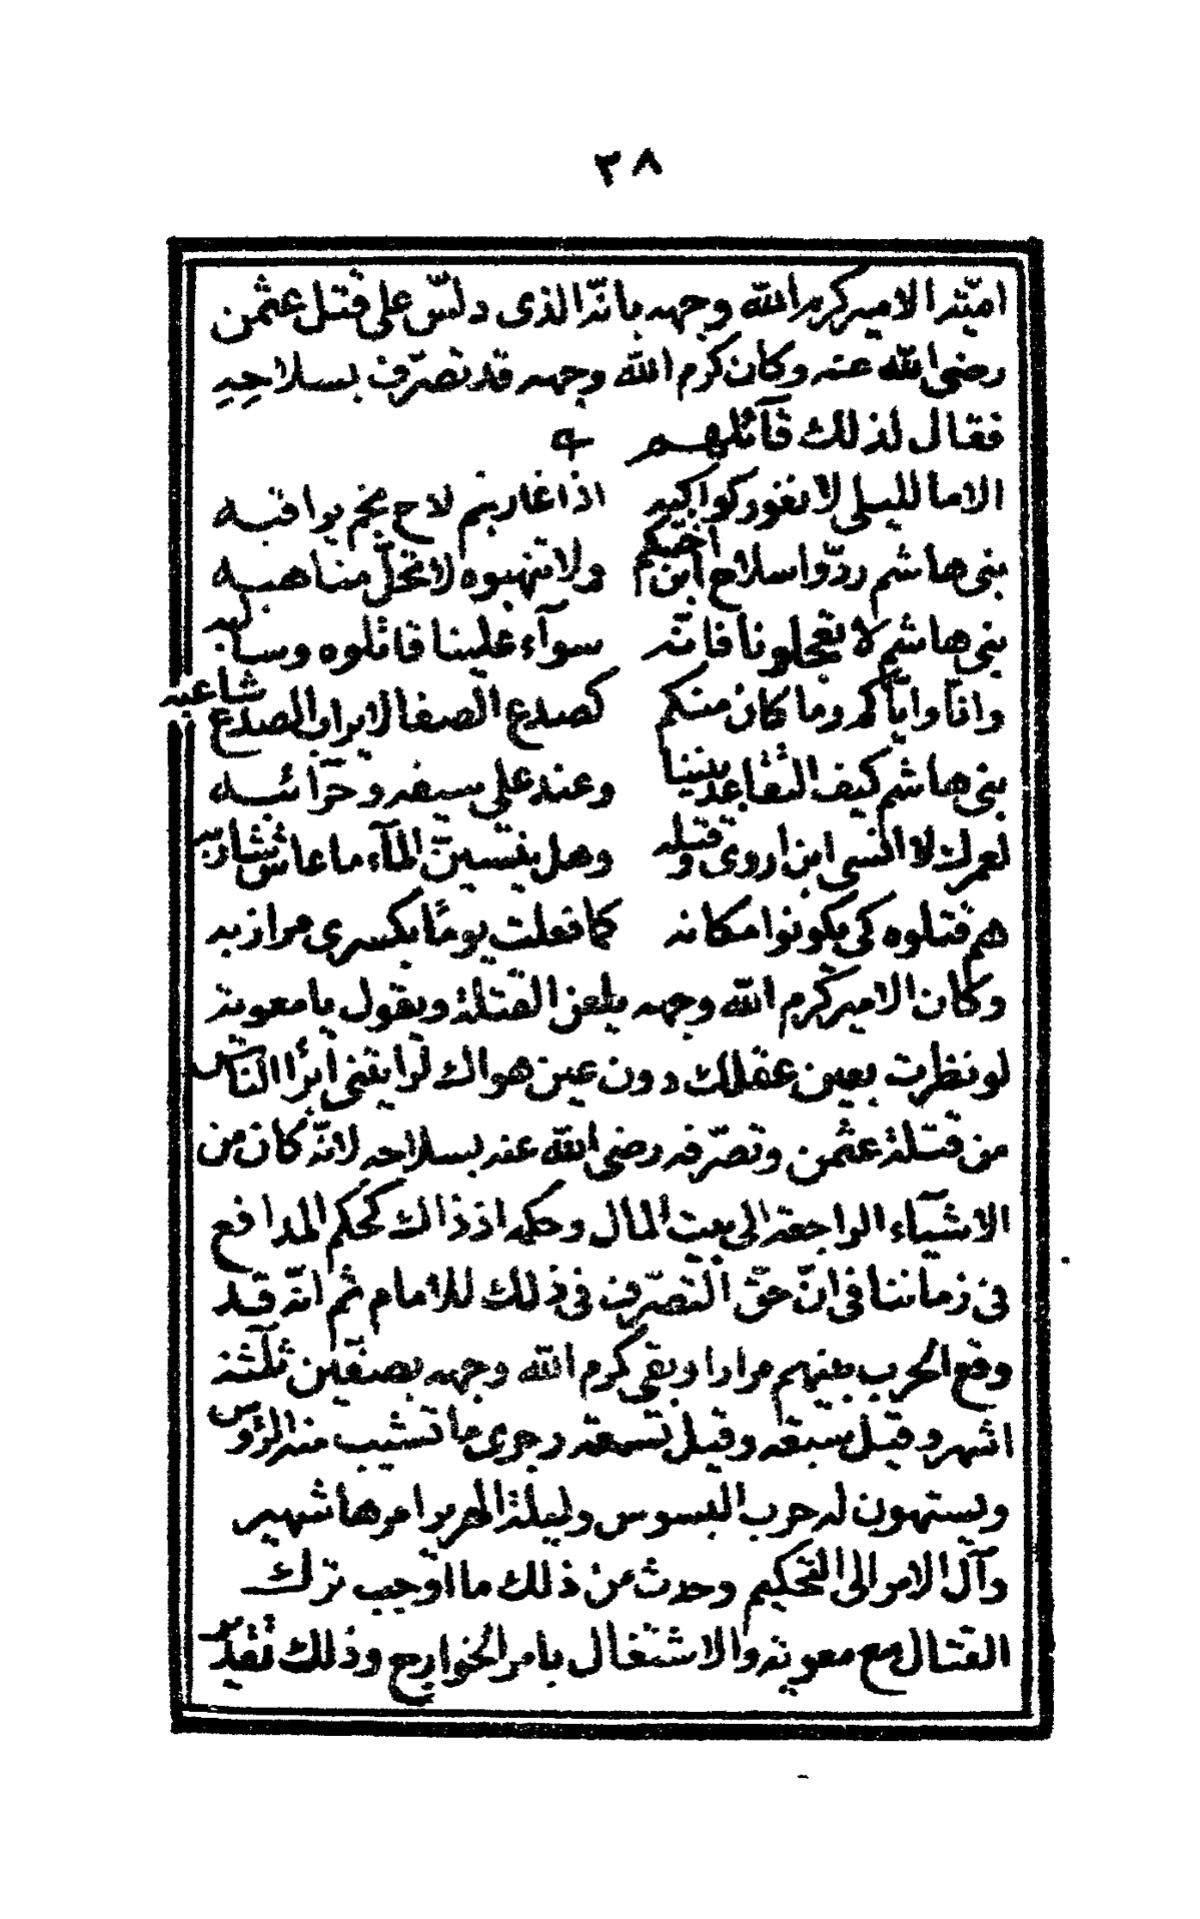 ٣٨
اميّة الامير كرم الله وجهه بانّه الذى دلّس على قتل عثمن
رضى الله عنه وكان كرم الله وجهه قد تصرّف بسلاحه
فقال لذلك قآئلهم
الا ما لليلى لا تغور كواكبه اذا غار نجم لاح نجم يراقبه
بنى هاشم ردّوا سلاح ابن اختكم ولا تنهبوه لا تحلّ مناهبه
بنى هاشم لا تعجلونا فانّه سوآء علينا قاتلوه وسالبه
وانّا وايّاكم وما كان منكم كصدع الصفا لا يراب الصدع شاعبه
بنى هاشم كيف التقاعد بيننا وعند على سيفه وحرآئبه
لعمرك لا انسى ابن اروى وقتله وهل ينسينّ المآء ما عاش شاربه
هم قتلوه كى يكونوا مكانه كما فعلت يومًا بكسرى مرازبه
وكان الامير كرم الله وجهه يلعن القتلة ويقول يا معوية
لو نظرت بعين عقلك دون عين هواك لرايتنى ابرا الناس
من قتلة عثمن وتصرّفه رضى الله عنه بسلاحه لانّه كان من
الاشيآء الراجعة الى بيت المال وحكمه اذ ذاك كحكم المدافع
فى زماننا فى انّ حقّ التصرّف فى ذلك للامام ثم انّه قد
وقع الحرب بينهم مرارا وبقى كرم الله وجهه بصفين ثلثة
اشهر وقيل سبعة وقيل تسعة وجرى ما تشيب منه الرؤس
ويستهون له حرب البسوس وليلة الهرير امرها شهير
وآل الامر الى التحكيم وحدث من ذلك ما اوجب ترك
القتال مع معوية والاشتغال بامر الخوارج وذلك تقدير